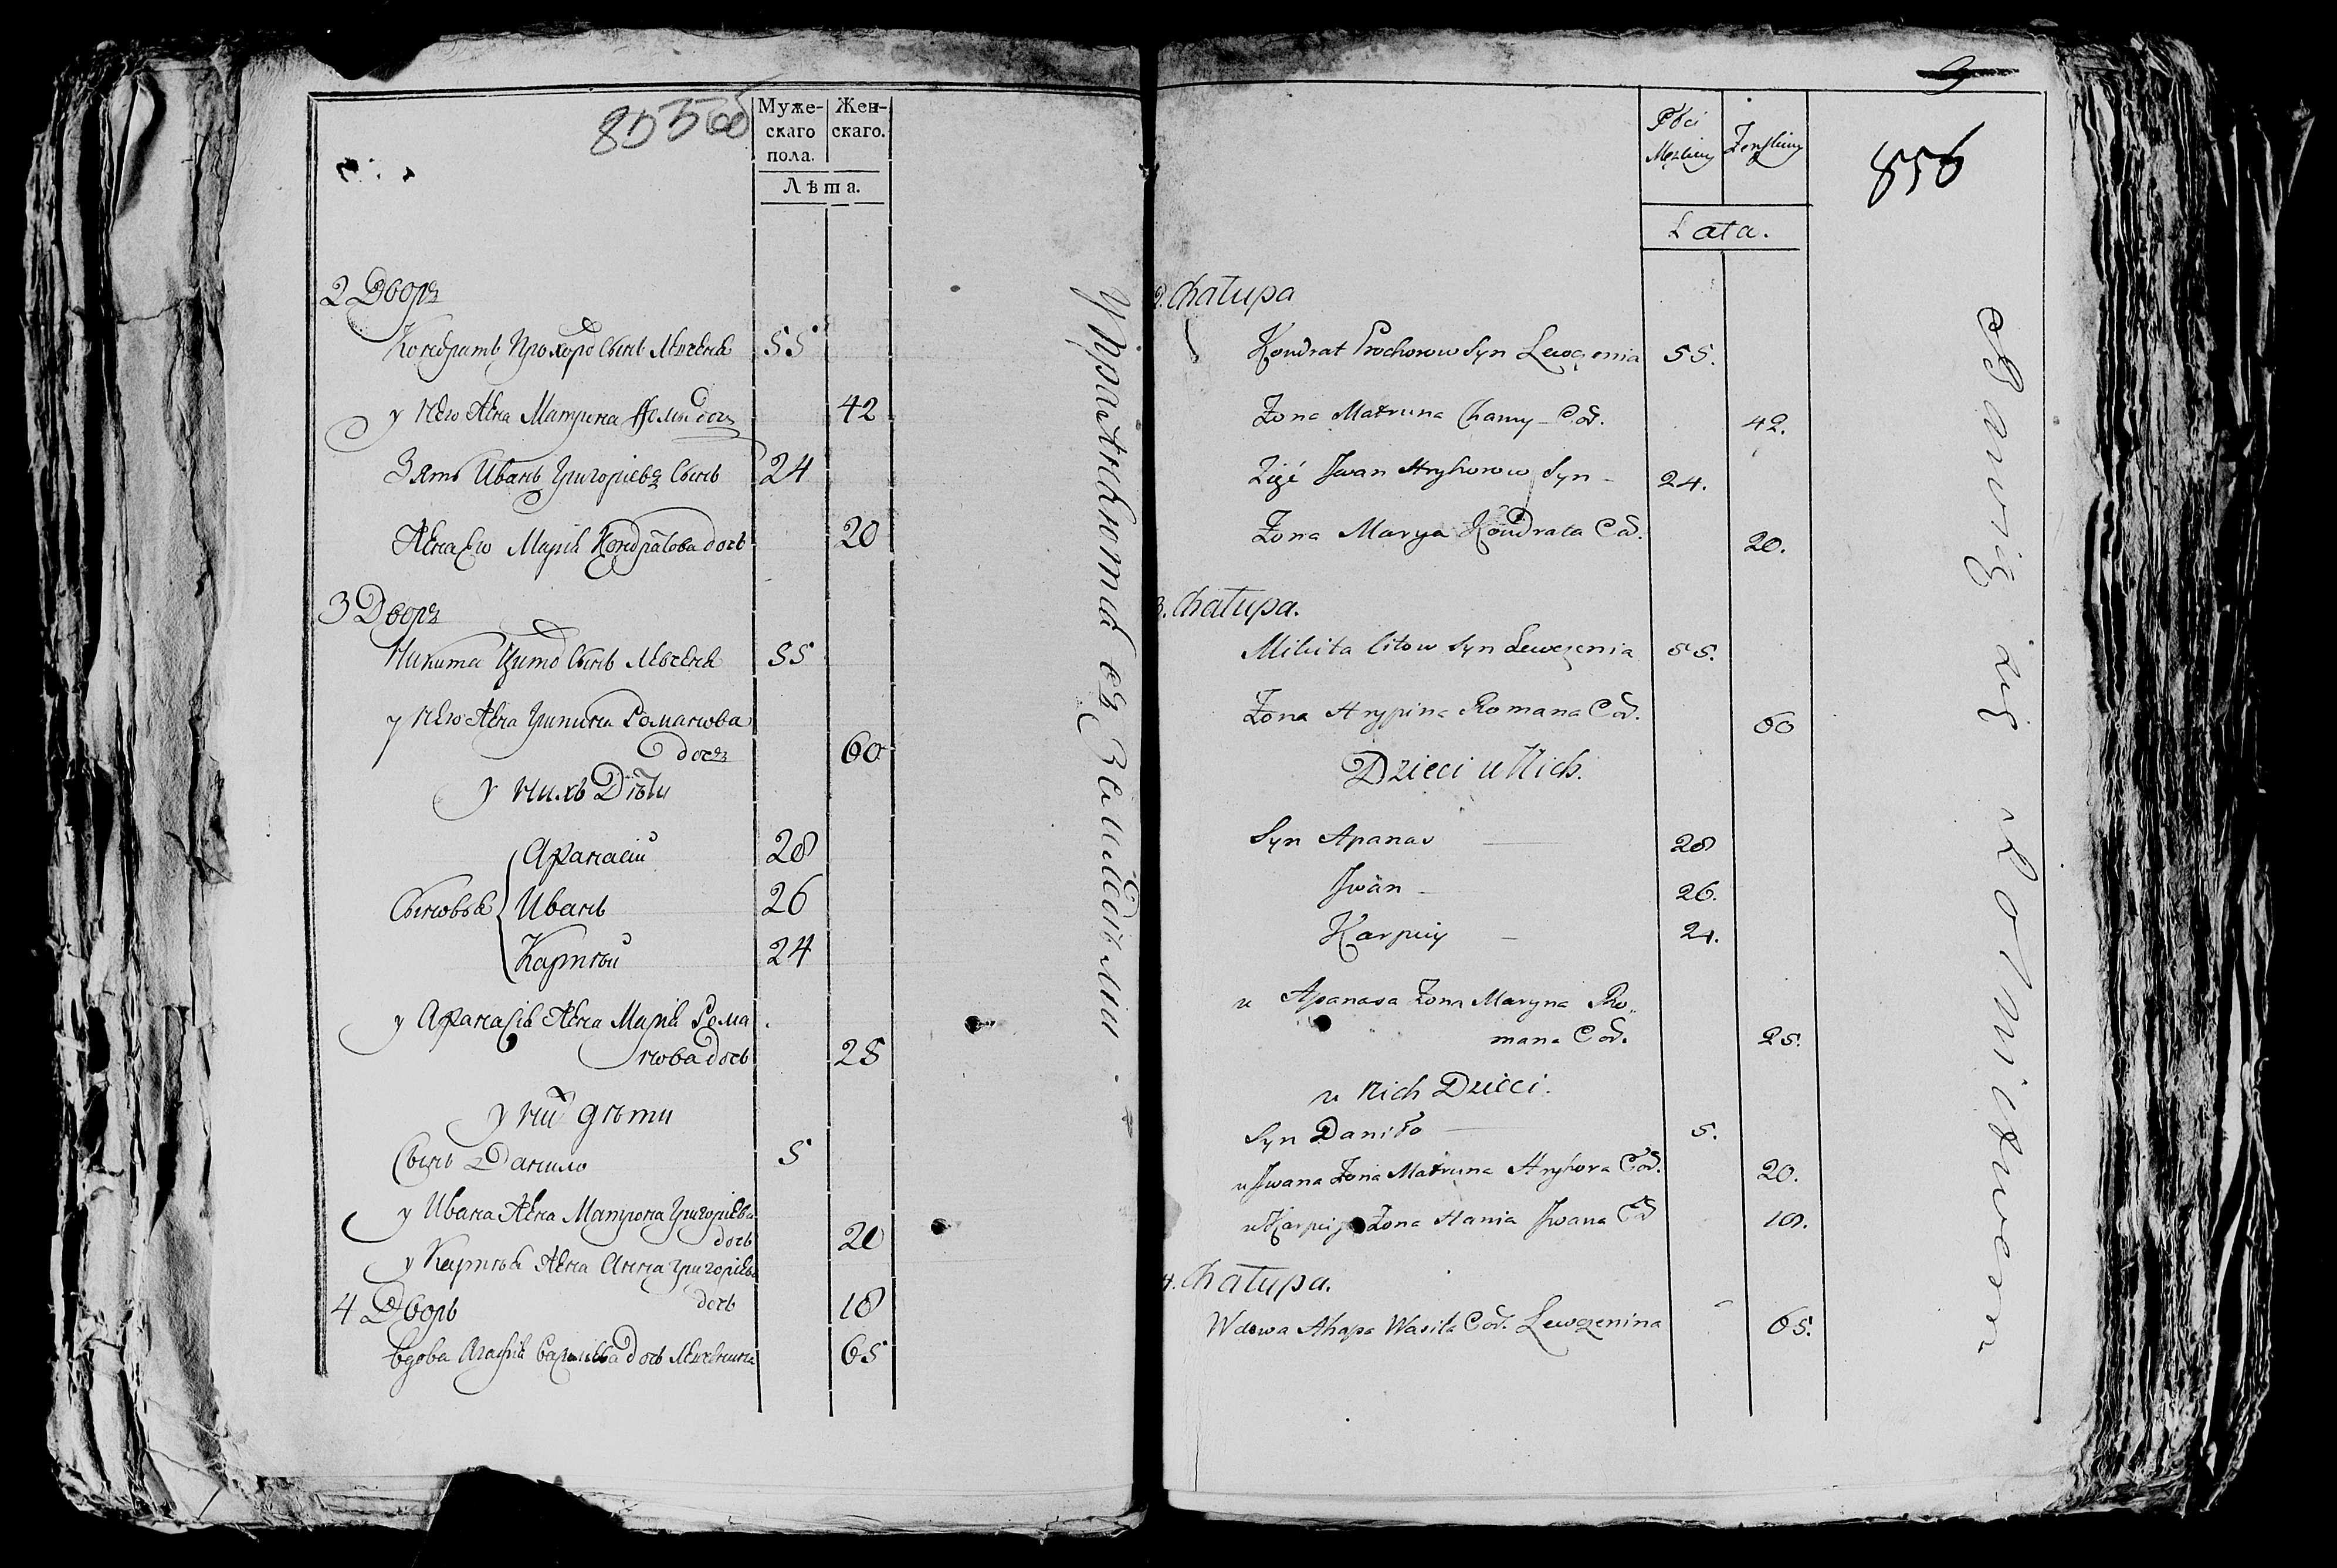 855 об
Муже-
скаго
пола.
Жен-
скаго.
Лѣта.
2 Дворъ
Кондратъ Прохоро Сынъ Левченя 55
у него Жена Матрона Хомы дочь 42
Зять Иванъ Григоріевъ Сынъ 24
Жена Его Марія Кондратова дочь 20
3 Дворъ
Никита Тито Сынъ Левченя 55
у него Жена Грипина Романова
дочь 60
у нихъ Дѣти
Афанасій 28
Сыновья Иванъ 26
Карпѣй 24
у Афанасія Жена Марія Рома
нова дочь 25
у ній дѣти
Сынъ Данило 5
у Ивана Жена Матрона Григоріева
дочь 20
у Карпѣя Жена Анна Григоріева
дочь 18
4 Дворъ
Вдова Агафія дочь 65
Упражняются въ Землѣделіи
9
856
Płci
Męzkiey
Zenskiey
Lata.
2. Chałupa
Kondrat Prochorow Syn Lewczenia 55.
Zona Matruna Chamy Cod. 42.
Zięć Jwan Hryhorow Syn 24.
Zona Marya Kondrata Cod. 20.
3. Chałupa.
Mikita Citow Syn Lewczenia 55.
Zona Hrypina Romana Cod. 60
Dzieci u Nich.
Syn Apanas 28
Jwan 26.
Karpiey 24.
u Apanasa Zona Maryna Ro„
mana Cod. 25.
u Nich Dzieci.
Syn Daniło 5.
u Jwana Zona Matruna Hryhora Cod. 20.
u Karpieja Zona Hania Jwana Cod 18.
4. Chałupa.
Wdowa Ahapa Wasila Cod. Lewczenina 65.
Bawią się Rolnictwem